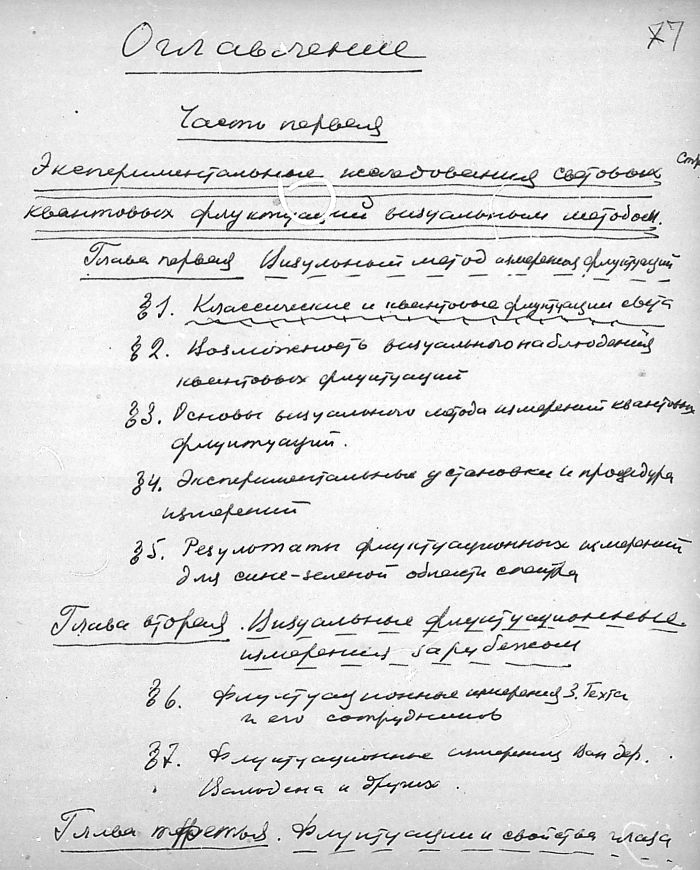 77
Оглавление
Часть первая
Стр
Экспериментальные исследования световых
квантовых флуктуаций визуальным методом.
Глава первая Визуальный метод измерения флуктуаций
§1. Классические и квантовые флуктуации света
§2. Возможность визуального наблюдения
квантовых флуктуаций
§3. Основы визуального метода измерений квантовых
флуктуаций.
§4. Экспериментальные установки и процедура
измерений
§5. Результаты флуктуационных измерений
для сине-зеленой области спектра
Глава вторая. Визуальные флуктуационные
измерения за рубежом
§6. Флуктуационные измерения З. Гехта
и его сотрудников
§7. Флуктуационные измерения Ван дер.
и других.
Глава третья. Флуктуации и свойства глаза